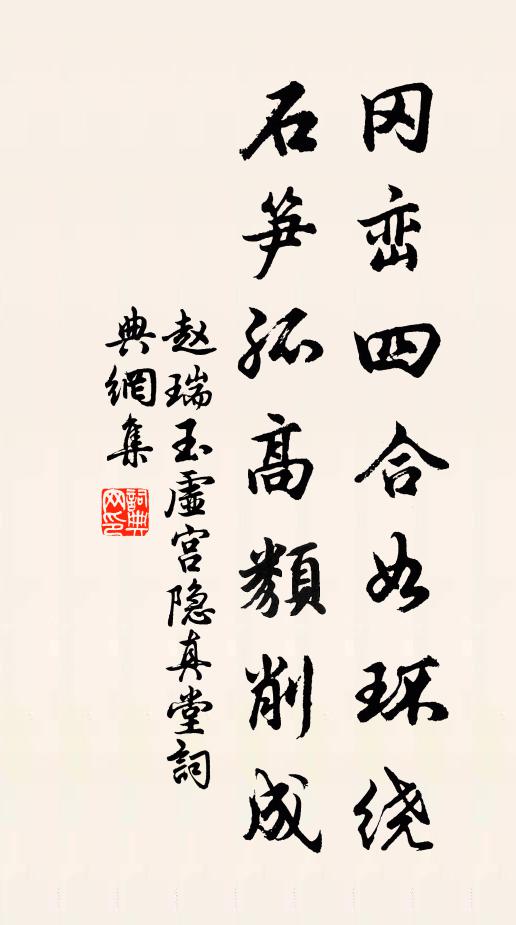 冈峦四合如环绕
石笋孤高類削成
赵瑞玉虚宫隐真堂詞
典網集
詞典
网印